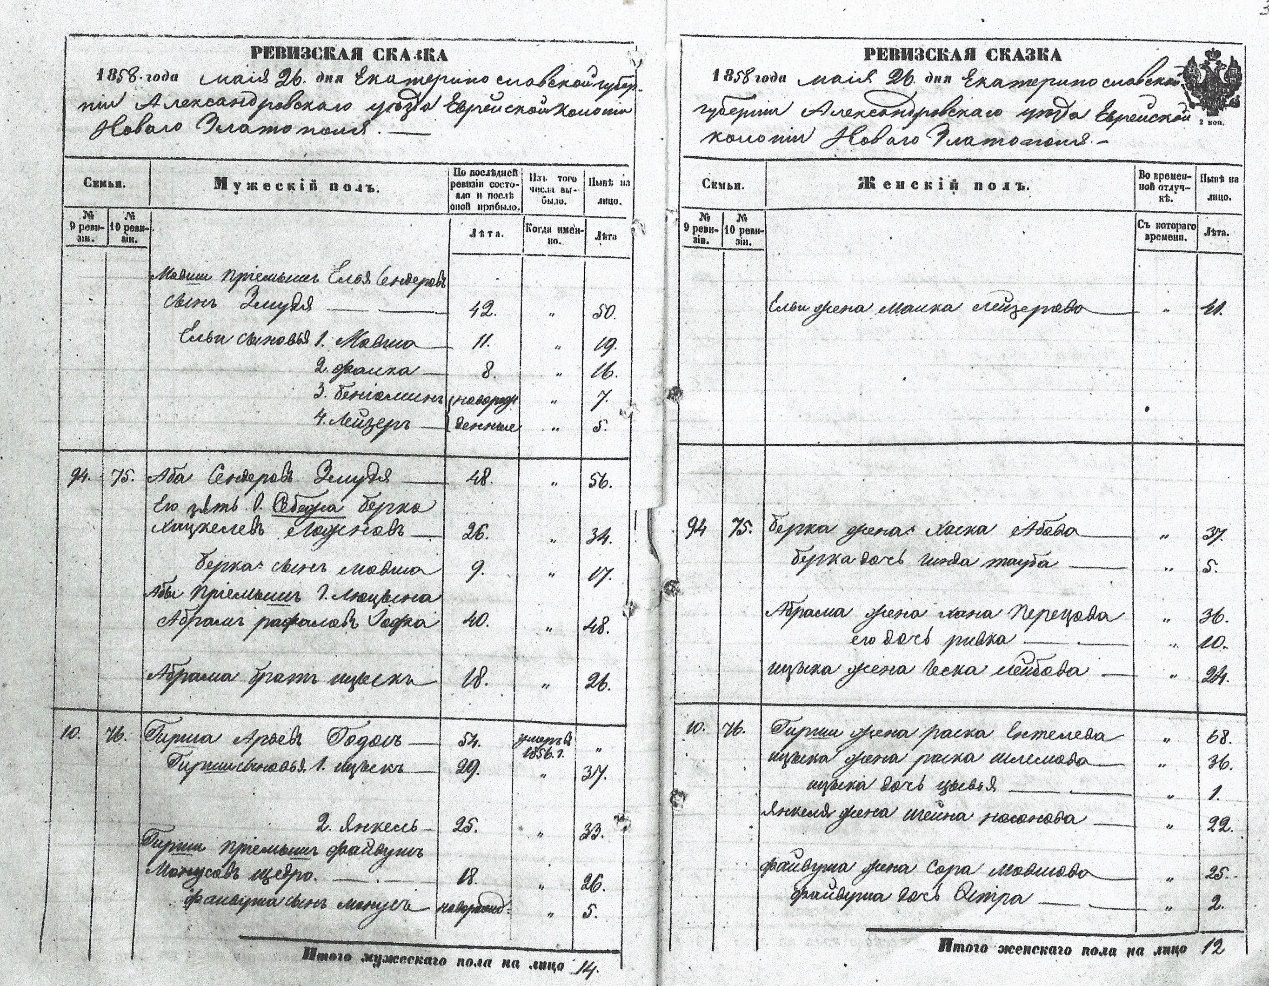 РЕВИЗСКАЯ СКАЗКА
1858 года маія 26 дня Екатеринославской губер-
ніи Александровскаго уѣзда Еврейской Колоніи
Новаго Златополя.
Семьи.
Мужескій полъ.
По послѣдней ревизіи состояло и послѣ оной прибыло.
Изъ того числа выбыло.
Нынѣ на лицо.
№ 9 ревизіи.
№ 10 ревизіи.
Лѣта.
Когда именно.
Лѣта
Мовши пріемышъ Елья Сендеровъ
сынъ Змудя 42. „ 50.
Ельи сыновья 1. Мовша 11. „ 19.
2. Фалка 8. „ 16.
3. Беніоминъ новорож „ 7.
4. Лейзеръ денные „ 5.
94. 75. Аба Сендеровъ Змудя 48. „ 56.
Его зять Берко
Хацкелевъ 26. „ 34.
Берка сынъ Мовша 9. „ 17.
Абы Пріемышъ
Абрамъ Рафаловъ 40. „ 48.
Абрама братъ Ицыкъ 18. „ 26.
10. 76. Гирша Арьевъ Годолъ 54. умеръ в 1856 г. „
Гирши сыновья 1. Ицыкъ 29. „ 37.
2. Янкель 25. „ 33.
Гирши Пріемышъ Файвушъ
Монусовъ Щедро. 18. „ 26.
Файвуша сынъ Монусъ новорожд. „ 5.
Итого мужескаго пола на лицо 14.
РЕВИЗСКАЯ СКАЗКА
1858 года маія 26 дня Екатеринославской
губерніи Александровскаго уѣзда Еврейской
колоніи Новаго Златополя.
2 коп.
Семьи.
Женскій полъ.
Во временной отлучкѣ.
Нынѣ на лицо.
№ 9 ревизіи.
№ 10 ревизіи.
Съ котораго времени.
Лѣта.
Ельи жена Малка Лейзерова „ 41.
94 75. Берка жена Хаска Абова „ 37.
Берка дочь Гнода Тауба „ 5.
Абрама жена Хана Перецова „ 36.
его дочь Ривка „ 10.
Ицыка жена Песка Лейбова „ 24.
10. 76. Гирши жена Раска Ентелева „ 68.
Ицыка жена Раска Шлемова „ 36.
Ицыка дочь Цывья „ 1.
Янкеля жена Шейна Носонова „ 22.
Файвуша жена Сора Мовшова „ 25.
Файвуша дочь Эстра „ 2.
Итого женскаго пола на лицо 12